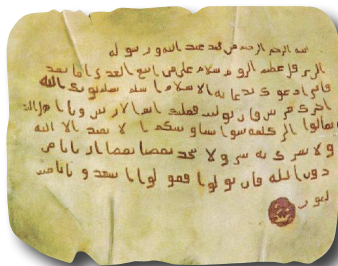 بسم الله الرحمن الرحيم من محمد عبد الله ورسوله
الى هرقل عظيم الروم سلام على من اتبع الهدى اما بعد
فاني ادعوك بدعاية الاسلام اسلم تسلم يوتك الله
اجرك مرتين فان توليت فعليك اثم الاريسيين ويا اهل
تعالوا الى كلمة سوا بيننا وبينكم الا نعبد الا الله
ولا نشرك به شيا ولا يتخذ بعضنا بعضا اربابا من
دون الله فان تولوا فقولوا اشهدوا بانا مس
لمون